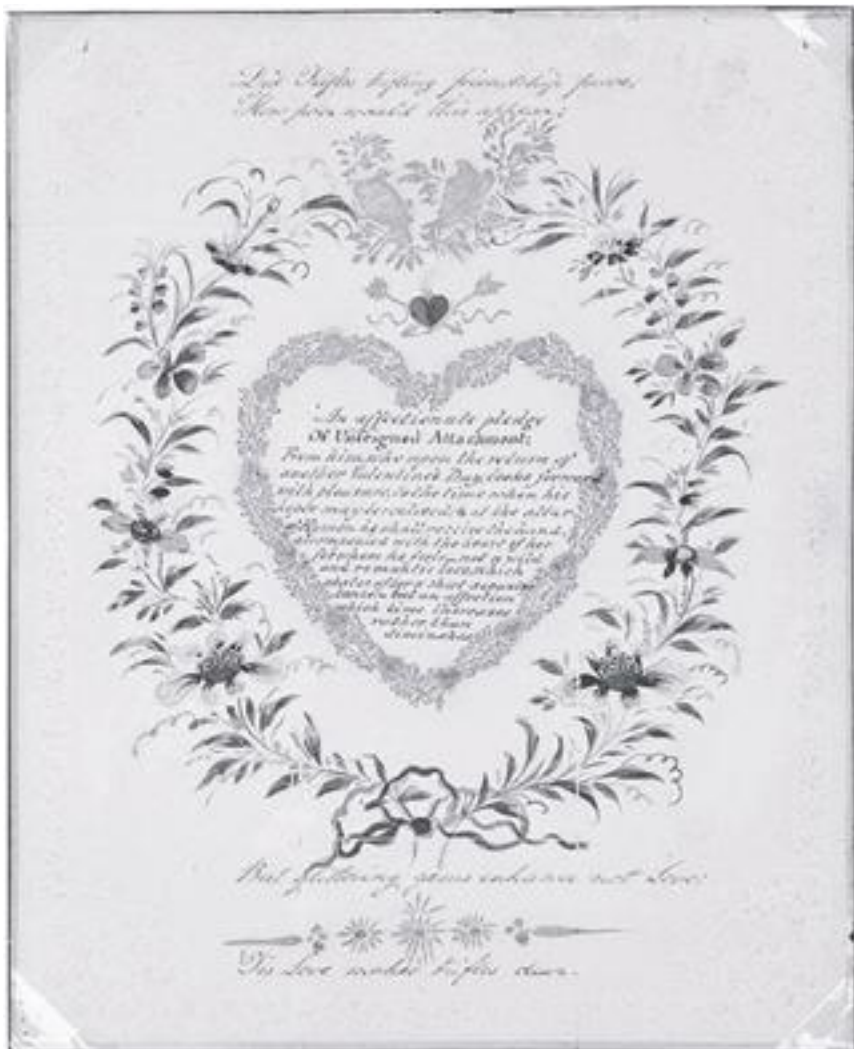 Did Trifles trifling friendship prove,
How poor would this appear;
An affectionate pledge
Of Unfeigned Attachment:
From him, who upon the return of
another Valentine's Day, looks forward
with pleasure, to the time when his
may be at the altar
of Hymen he shall receive the hand,
accompanied with the heart of her
for whom he feels, not a wild
and romantic love, which
abates after a short acquain-
tance, but an affection
which time increases
rather than
diminishes
But glittering gems enhance not Love:
Tis Love makes trifles dear.